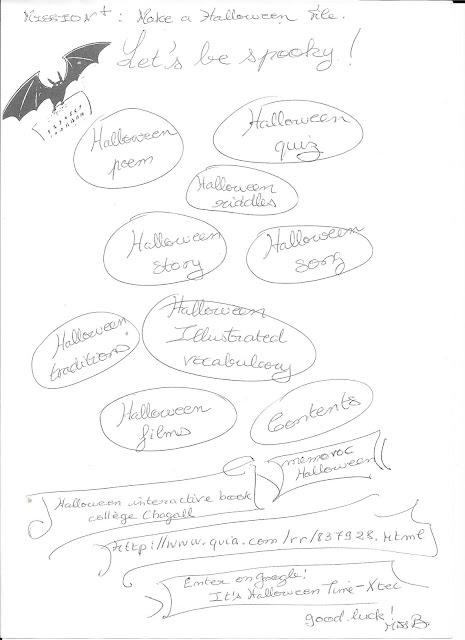 Mission+: Make a Halloween file.
Let's be spooky!
Halloween
poem
Halloween
quiz
Halloween
riddles
Halloween
story
Halloween
song
Halloween
traditions
Halloween
Illustrated
vocabulary
Halloween
films
Contents
memoroc
Halloween
Halloween interactive book
collège Chagall
http://www.quia.com/rr/837928.html
Enter on google!
It's Halloween Time-Xtec
Good luck!
Miss B.